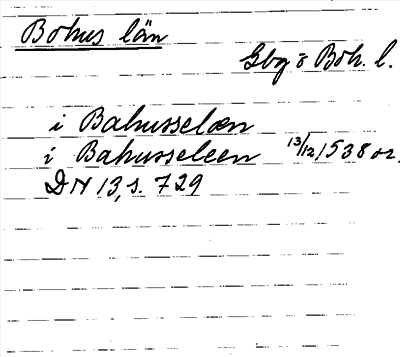 Bohus län
Gbg o Boh. l.
i Bahusselæn
i Bahusseleen 13/12 1538 or.
DN 13, s. 729